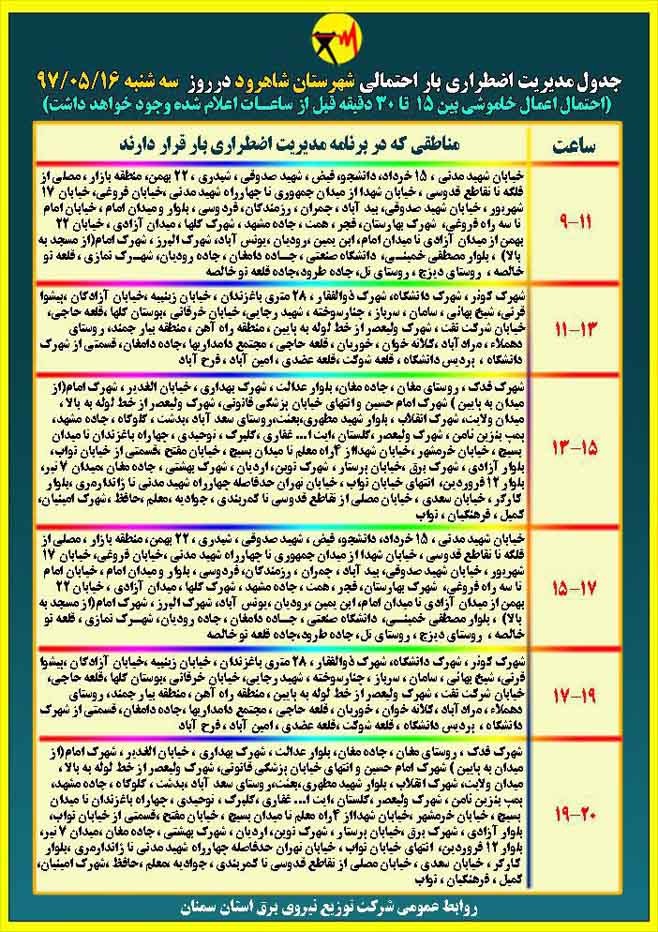 جدول مدیریت اضطراری بار احتمالی شهرستان شاهرود درروز سه شنبه ۹۷/۰۵/۱۶
(احتمال اعمال خاموشی بین ۱۵ تا ۳۰ دقیقه قبل از ساعات اعلام شده وجود خواهد داشت)
ساعت
مناطقی که در برنامه مدیریت اضطراری بار قرار دارند
۹-۱۱
خیابان شهید مدنی ، ۱۵ خرداد، دانشجو، فیض ، شهید صدوقی ، شیدری ، ۲۲ بهمن، منطقه بازار ، مصلی از
فلکه تا تقاطع قدوسی ، خیابان شهدا از میدان جمهوری تا چهارراه شهید مدنی ،خیابان فروغی، خیابان ۱۷
شهریور ، خیابان شهید صدوقی، بید آباد ، چمران ، رزمندگان، فردوسی ، بلوار و میدان امام ، خیابان امام
تا سه راه فروغی، شهرک بهارستان، فجر ، همت ، جاده مشهد ، شهرک گلها ، میدان آزادی ، خیابان ۲۲
بهمن از میدان آزادی تا میدان امام، ابن یمین ،رودیان ، یونس آباد، شهرک البرز ، شهرک امام(از مسجد به
بالا) ، بلوار مصطفی خمینی، دانشگاه صنعتی ، جاده دامغان ، جاده رودیان، شهرک نمازی ، قلعه نو
خالصه ، روستای دیزج ، روستای تل، جاده طرود،جاده قلعه نو خالصه
۱۱-۱۳
شهرک کوثر ، شهرک دانشگاه، شهرک ذوالفقار ، ۲۸ متری باغزندان ، خیابان زینبیه ،خیابان آزادگان ،پیشوا
قرنی، شیخ بهائی ، سامان ، سرباز ، چنارسوخته ، شهید رجایی، خیابان خرقانی ،بوستان گلها ،قلعه حاجی،
خیابان شرکت نفت ، شهرک ولیعصر از خط لوله به پایین ، منطقه راه آهن ، منطقه بیار جمند، روستای
دهملاء ، مراد آباد، کلاته خوان ، خوریان ، قلعه حاجی ، مجتمع دامداریها ،جاده دامغان، قسمتی از شهرک
دانشگاه ، پردیس دانشگاه ، قلعه شوکت، قلعه عضدی ، امین آباد ، فرح آباد
۱۳-۱۵
شهرک فدک ، روستای مغان ، جاده مغان، بلوار عدالت ، شهرک بهداری ، خیابان الغدیر ، شهرک امام(از
میدان به پایین ) شهرک امام حسین و انتهای خیابان پزشکی قانونی، شهرک ولیعصر از خط لوله به بالا،
میدان ولایت، شهرک انقلاب ، بلوار شهید مطهری،بعثت،روستای سعد آباد، بدشت ، کلوگاه ، جاده مشهد،
پمپ بنزین نامن ، شهرک ولیعصر، گلستان ،آیت ا... غفاری ، گلبرگ ، توحیدی ، چهارراه باغزندان تا میدان
بسیج ، خیابان خرمشهر، خیابان شهدااز ۴راه معلم تا میدان بسیج ، خیابان مفتح ،قسمتی از خیابان تواب،
بلوار آزادی ، شهرک برق ،خیابان پرستار ، شهرک نوین، اردیان ، شهرک بهشتی ، جاده مغان ،میدان ۷ تیر،
بلوار ۱۲ فروردین، انتهای خیابان تواب ، خیابان تهران حدفاصله چهارراه شهید مدنی تا ژاندارمری، بلوار
کارگر ، خیابان سعدی ، خیابان مصلی از تقاطع قدوسی تا کمربندی ، جوادیه ،معلم ،حافظ ،شهرک امینیان،
کمیل ، فرهنگیان ، تواب
۱۵-۱۷
خیابان شهید مدنی ، ۱۵ خرداد، دانشجو، فیض ، شهید صدوقی ، شیدری ، ۲۲ بهمن، منطقه بازار ، مصلی از
فلکه تا تقاطع قدوسی ، خیابان شهدا از میدان جمهوری تا چهارراه شهید مدنی ،خیابان فروغی، خیابان ۱۷
شهریور ، خیابان شهید صدوقی، بید آباد ، چمران ، رزمندگان، فردوسی ، بلوار و میدان امام ، خیابان امام
تا سه راه فروغی، شهرک بهارستان، فجر ، همت ، جاده مشهد ، شهرک گلها ، میدان آزادی ، خیابان ۲۲
بهمن از میدان آزادی تا میدان امام، ابن یمین ،رودیان ، یونس آباد، شهرک البرز ، شهرک امام(از مسجد به
بالا) ، بلوار مصطفی خمینی، دانشگاه صنعتی ، جاده دامغان ، جاده رودیان، شهرک نمازی ، قلعه نو
خالصه ، روستای دیزج ، روستای تل، جاده طرود،جاده قلعه نو خالصه
۱۷-۱۹
شهرک کوثر ، شهرک دانشگاه، شهرک ذوالفقار ، ۲۸ متری باغزندان ، خیابان زینبیه ،خیابان آزادگان ،پیشوا
قرنی، شیخ بهائی ، سامان ، سرباز ، چنارسوخته ، شهید رجایی، خیابان خرقانی ،بوستان گلها ،قلعه حاجی،
خیابان شرکت نفت ، شهرک ولیعصر از خط لوله به پایین ، منطقه راه آهن ، منطقه بیار جمند، روستای
دهملاء ، مراد آباد، کلاته خوان ، خوریان ، قلعه حاجی ، مجتمع دامداریها ،جاده دامغان، قسمتی از شهرک
دانشگاه ، پردیس دانشگاه ، قلعه شوکت، قلعه عضدی ، امین آباد ، فرح آباد
۱۹-۲۰
شهرک فدک ، روستای مغان ، جاده مغان، بلوار عدالت ، شهرک بهداری ، خیابان الغدیر ، شهرک امام(از
میدان به پایین ) شهرک امام حسین و انتهای خیابان پزشکی قانونی، شهرک ولیعصر از خط لوله به بالا،
میدان ولایت، شهرک انقلاب ، بلوار شهید مطهری،بعثت،روستای سعد آباد، بدشت ، کلوگاه ، جاده مشهد،
پمپ بنزین نامن ، شهرک ولیعصر، گلستان ،آیت ا... غفاری ، گلبرگ ، توحیدی ، چهارراه باغزندان تا میدان
بسیج ، خیابان خرمشهر، خیابان شهدااز ۴راه معلم تا میدان بسیج ، خیابان مفتح ،قسمتی از خیابان تواب،
بلوار آزادی ، شهرک برق ،خیابان پرستار ، شهرک نوین، اردیان ، شهرک بهشتی ، جاده مغان ،میدان ۷ تیر،
بلوار ۱۲ فروردین، انتهای خیابان تواب ، خیابان تهران حدفاصله چهارراه شهید مدنی تا ژاندارمری، بلوار
کارگر ، خیابان سعدی ، خیابان مصلی از تقاطع قدوسی تا کمربندی ، جوادیه ،معلم ،حافظ ،شهرک امینیان،
کمیل ، فرهنگیان ، تواب
روابط عمومی شرکت توزیع نیروی برق استان سمنان